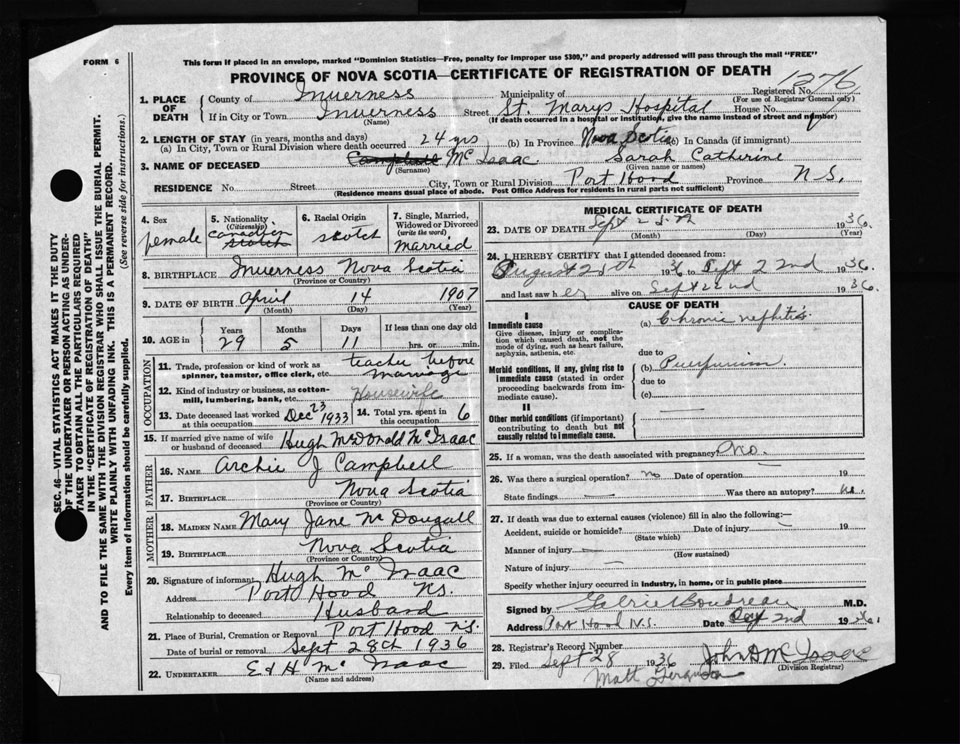 FORM 6
This form if placed in an envelope, marked "Dominion Statistics—Free, penalty for improper use $300," and properly addressed will pass through the mail "FREE"
PROVINCE OF NOVA SCOTIA—CERTIFICATE OF REGISTRATION OF DEATH
Registered No. 1276
(For use of Registrar General only)
1. PLACE OF DEATH
County of Inverness Municipality of
If in City or Town Inverness Street St. Marys Hospital House No.
(Name) (If death occurred in a hospital or institution, give the name instead of street and number)
2. LENGTH OF STAY (in years, months and days)
(a) In City, Town or Rural Division where death occurred 24 yrs (b) In Province Nova Scotia (c) In Canada (if immigrant)
3. NAME OF DECEASED Campbell McIsaac Sarah Catherine
(Surname) (Given name or names)
RESIDENCE No. Street City, Town or Rural Division Port Hood Province N.S.
(Residence means usual place of abode. Post Office Address for residents in rural parts not sufficient)
4. Sex
female
5. Nationality (Citizenship)
Canadian
Scotch
6. Racial Origin
Scotch
7. Single, Married, Widowed or Divorced (write the word)
Married
8. BIRTHPLACE Inverness Nova Scotia
(Province or Country)
9. DATE OF BIRTH April 14 1907
(Month) (Day) (Year)
10. AGE in Years Months Days If less than one day old
29 5 11 hrs. or min.
OCCUPATION
11. Trade, profession or kind of work as spinner, teamster, office clerk, etc. teacher before marriage
12. Kind of industry or business, as cotton-mill, lumbering, bank, etc. Housewife
13. Date deceased last worked at this occupation Dec 23 1933 14. Total yrs. spent in this occupation 6
15. If married give name of wife or husband of deceased Hugh McDonald McIsaac
FATHER
16. NAME Archie J Campbell
17. BIRTHPLACE Nova Scotia
(Province or Country)
MOTHER
18. MAIDEN NAME Mary Jane McDougall
19. BIRTHPLACE Nova Scotia
(Province or Country)
20. Signature of informant Hugh McIsaac
Address Port Hood NS.
Relationship to deceased Husband
21. Place of Burial, Cremation or Removal Port Hood N.S.
Date of burial or removal Sept 28th 1936
22. UNDERTAKER E & H McIsaac
(Name and address)
MEDICAL CERTIFICATE OF DEATH
23. DATE OF DEATH Sept 25th 1936
(Month) (Day) (Year)
24. I HEREBY CERTIFY that I attended deceased from:
August 25th 1936 to Sept 22nd 1936.
and last saw her alive on Sept 22nd 1936.
CAUSE OF DEATH
I
Immediate cause
Give disease, injury or complication which caused death, not the mode of dying, such as heart failure, asphyxia, asthenia, etc.
(a) Chronic nephitis
due to
Morbid conditions, if any, giving rise to immediate cause (stated in order proceeding backwards from immediate cause).
(b)
due to
(c)
II
Other morbid conditions (if important) contributing to death but not causally related to immediate cause.
25. If a woman, was the death associated with pregnancy? No.
26. Was there a surgical operation? no Date of operation 19
State findings Was there an autopsy? no.
27. If death was due to external causes (violence) fill in also the following:—
Accident, suicide or homicide? Date of injury 19
(State which)
Manner of injury
(How sustained)
Nature of injury
Specify whether injury occurred in industry, in home, or in public place
Signed by Gabriel Boudreau M.D.
Address Port Hood N.S. Date 2nd 1936
28. Registrar's Record Number
29. Filed Sept 28 1936 John A McIsaac
(Division Registrar)
Matt Ferguson
SEC. 46—VITAL STATISTICS ACT MAKES IT THE DUTY
OF THE UNDERTAKER OR PERSON ACTING AS UNDER-
TAKER TO OBTAIN ALL THE PARTICULARS REQUIRED
IN THE "CERTIFICATE OF REGISTRATION OF DEATH"
AND TO FILE THE SAME WITH THE DIVISION REGISTRAR WHO SHALL ISSUE THE BURIAL PERMIT.
WRITE PLAINLY WITH UNFADING INK. THIS IS A PERMANENT RECORD.
Every item of Information should be carefully supplied. (See reverse side for instructions.)